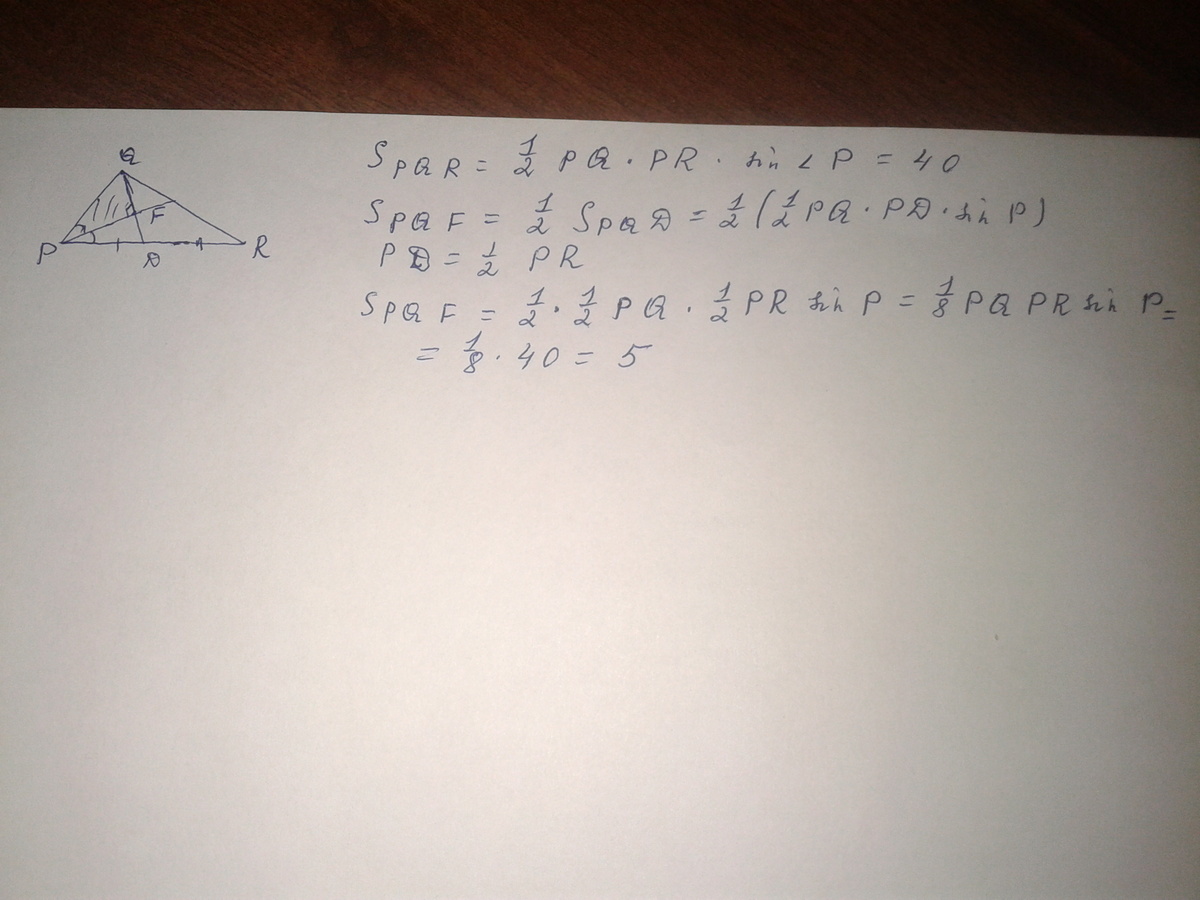 Q
F
P
D
R
S PQR = 1/2 PQ · PR · sin ∠ P = 40
S PQF = 1/2 S PQD = 1/2 (1/2 PQ · PD · sin P)
PD = 1/2 PR
S PQF = 1/2 · 1/2 PQ · 1/2 PR sin P = 1/8 PQ PR sin P =
= 1/8 · 40 = 5